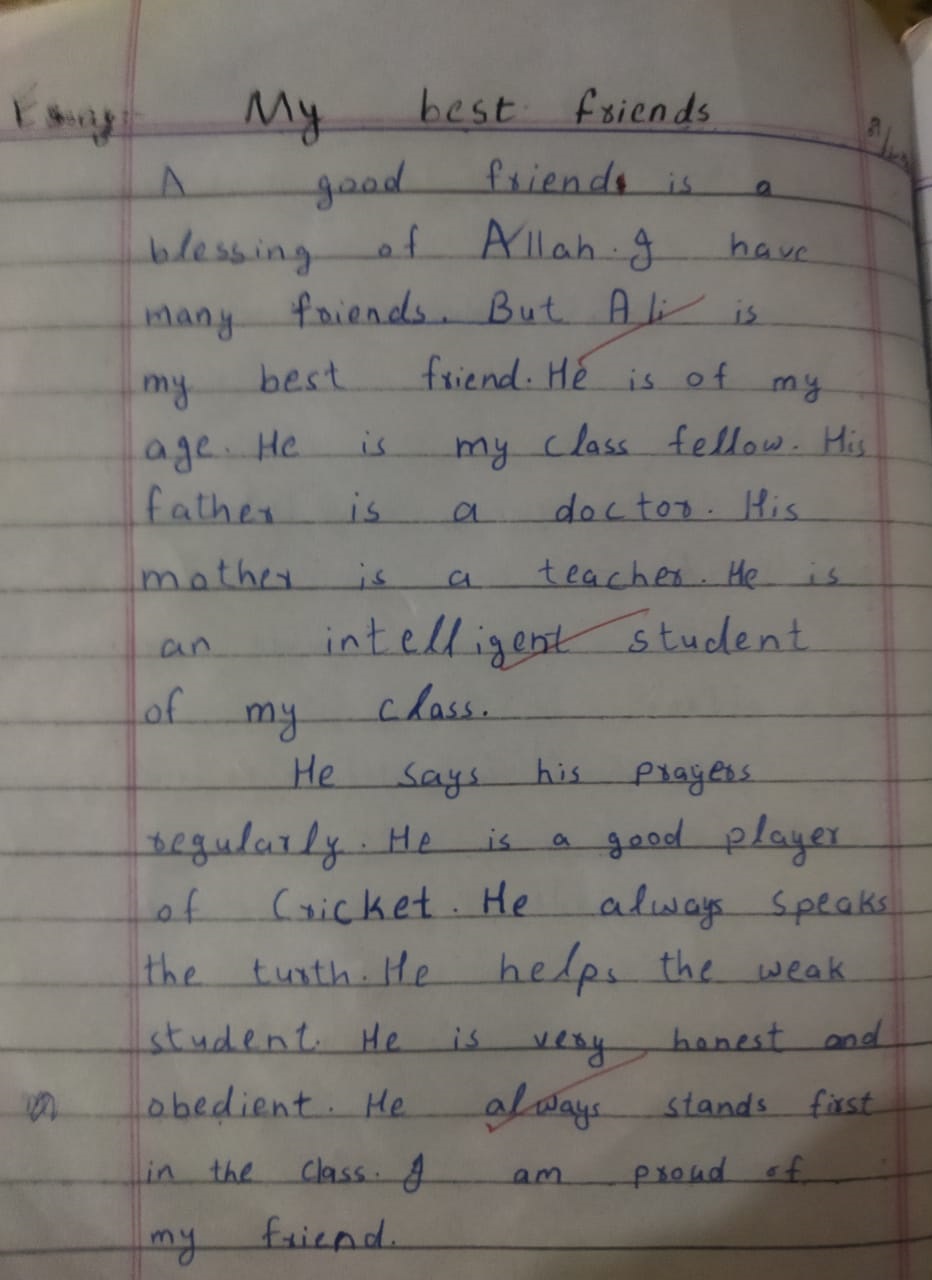 Essay: My best friends
A good friend is a
blessing of Allah. I have
many friends. But Ali is
my best friend. He is of my
age. He is my class fellow. His
father is a doctor. His
mother is a teacher. He is
an intelligent student
of my class.
He says his prayers
regularly. He is a good player
of Cricket. He always speaks
the turth. He helps the weak
student. He is very honest and
obedient. He always stands first
in the class. I am proud of
my friend.